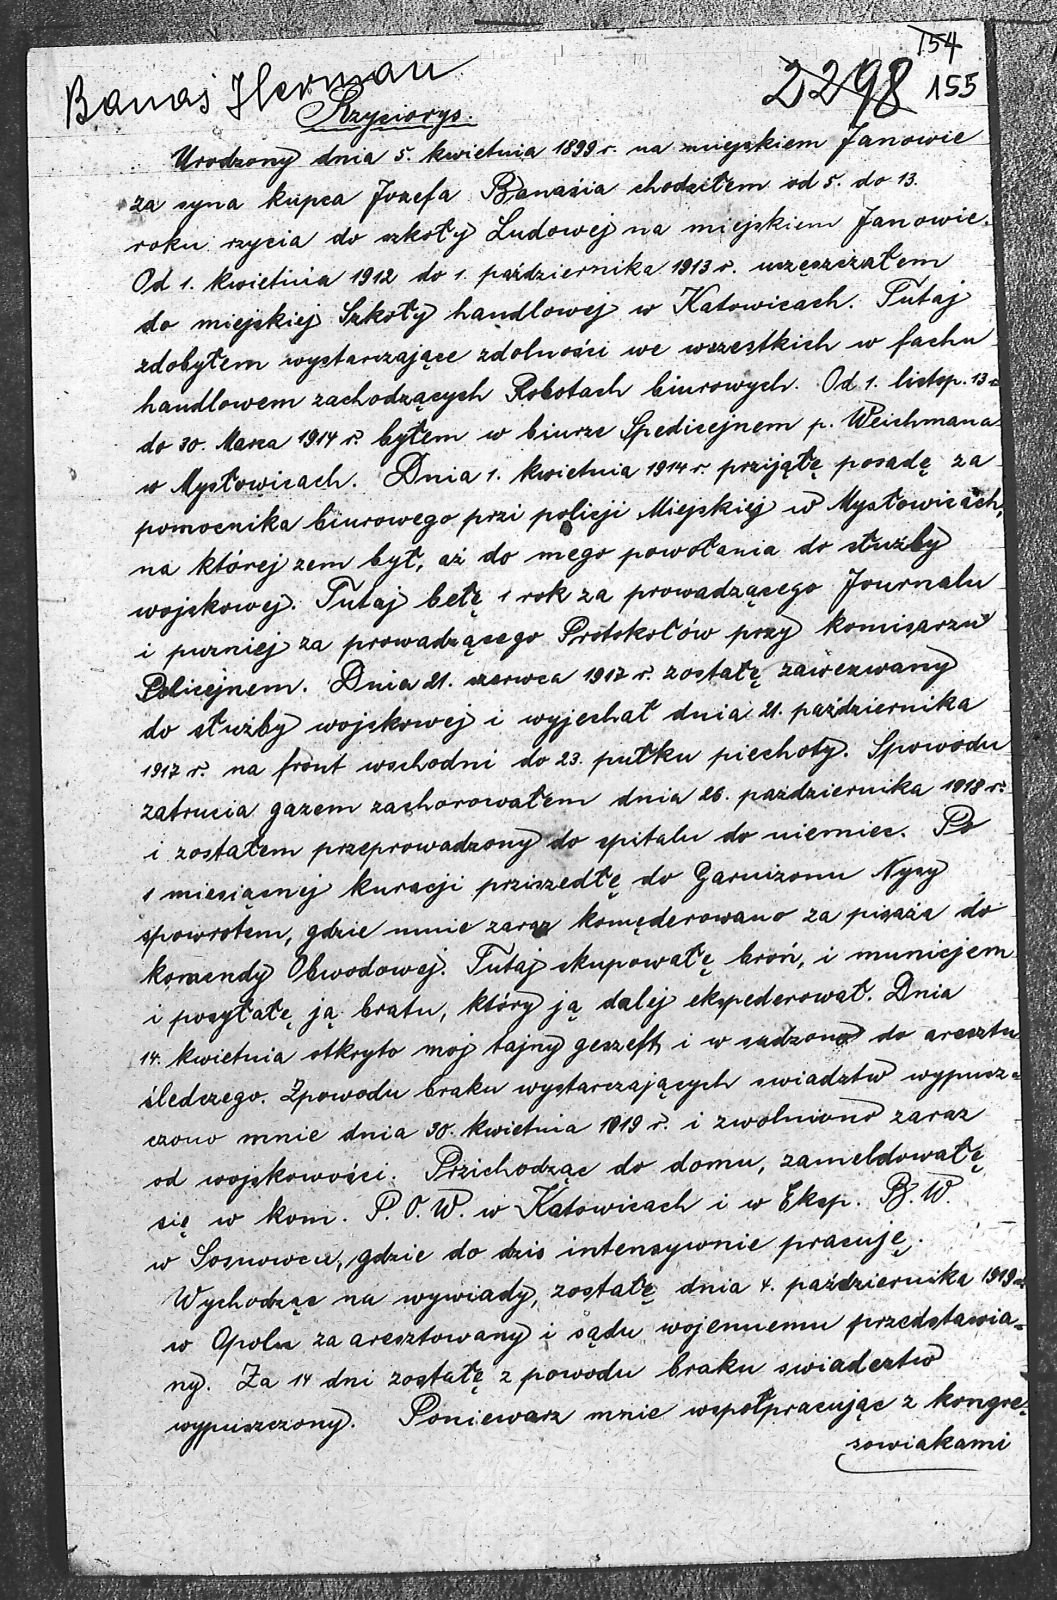 154
Banaś Herman 2298 155
Rzyciorys.
Urodzony dnia 5. kwietnia 1899 r. na miejskiem Janowie
za syna kupca Jozefa Banaśia chodziłem od 5. do 13.
roku rzycia do szkoły Ludowej na miejskiem Janowie.
Od 1. kwietnia 1912 do 1. października 1913 r. uczęszczałem
do miejskiej Szkoły handlowej w Katowicach. Tutaj
zdobyłem wystarczające zdolności we wszestkich w fachu
handlowem zachodzących Robotach biurowych. Od 1. listop. 13 r.
do 30. Marca 1914 r. byłem w biurze Spedicejnem p. Weichmana
w Mysłowicach. Dnia 1. kwietnia 1914 r. przijątę posadę za
pomocnika biurowego przi policji Miejskiej w Mysłowicach,
na której zem był, aż do mego powołania do służby
wojskowej. Tutaj betę 1 rok za prowadzącego Journalu
i purniej za prowadzącego Protokołów przy komisarzu
Policejnem. Dnia 21. czerwca 1917 r. zostałę zawezwany
do służby wojskowej i wyjechał dnia 21. października
1917 r. na front wschodni do 23. pułku piechoty. Spowodu
zatrucia gazem zachorowałem dnia 26. października 1918 r.
i zostałem przeprowadzony do spitalu do niemiec. Po
1 miesiącnej kuracji prziszedłę do Garnizonu Nysy
spowrotem, gdzie mnie zaraz komęderowano za pisaża do
komendy Obwodowej. Tutaj skupowałę broń, i municjem
i posyłałę ją bratu, który ją dalej ekspederował. Dnia
14. kwietnia otkryto moj tajny geszeft i w sadzono do aresztu
śledczego. Zpowodu braku wystarczających swiadztw wypusz=
czono mnie dnia 30. kwietnia 1919 r. i zwolniono zaraz
od wojskowości. Przichodząc do domu, zameldowałę
się w kom. P. O. W. w Katowicach i w Eksp. B. W.
w Sosnowcu, gdzie do dzis intensywnie pracuję.
Wychodząc na wywiady, zostałę dnia 4. października 1919 r.
w Opolu za aresztowany i sądu wojennemu przedstawia=
ny. Za 14 dni zostałę z powodu braku swiadectw
wypuszczony. Poniewarz mnie wspołpracując z kongre=
sowiakami